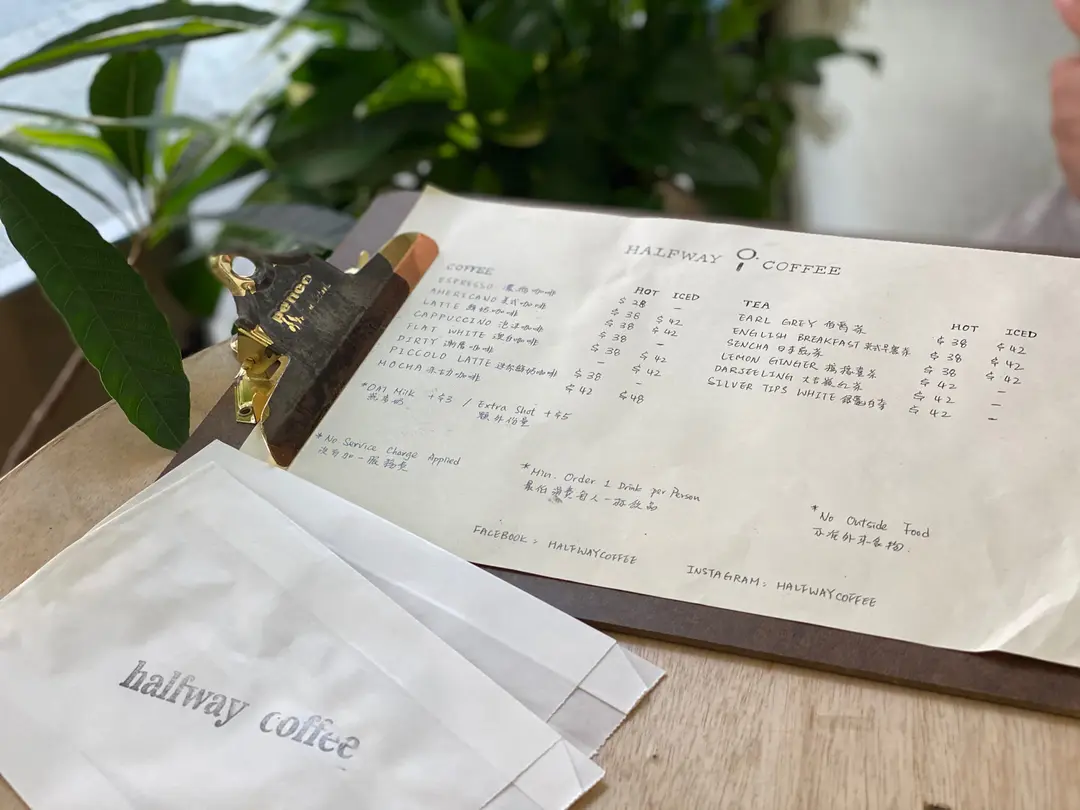 HALFWAY COFFEE
COFFEE HOT ICED
ESPRESSO 濃縮咖啡 $28 –
AMERICANO 美式咖啡 $38 $42
LATTE 鮮奶咖啡 $38 $42
CAPPUCCINO 泡沫咖啡 $38 –
FLAT WHITE 澳白咖啡 $38 $42
DIRTY 咖啡 $42
PICCOLO LATTE 鮮奶咖啡 $38 –
MOCHA 咖啡 $42 $48
*Oat Milk +$3 / Extra Shot +$5
燕麥奶 額外份量
TEA HOT ICED
EARL GREY 伯爵茶 $38 $42
ENGLISH BREAKFAST 英式早餐茶 $38 $42
SENCHA 日本煎茶 $38 $42
LEMON GINGER 檸檬薑茶 $42 –
DARJEELING 大吉嶺紅茶 $42 –
SILVER TIPS WHITE 銀毫白茶 $42 –
*No Service Charge Applied
沒有加一服務費
*Min. Order 1 Drink per Person
最低消費每人一杯飲品
*No Outside Food
不准外來食物.
FACEBOOK: HALFWAYCOFFEE
INSTAGRAM: HALFWAYCOFFEE
penco
halfway coffee